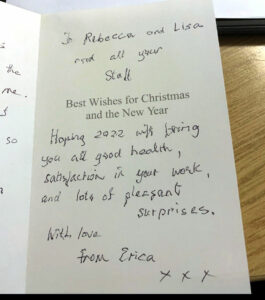 To Rebecca and Lisa
and all your
Staff
Best Wishes for Christmas
and the New Year
Hoping 2022 will bring
you all good health,
satisfaction in your work,
and lots of pleasant
surprises.
With love
From Erica
x x x
the
me.
so